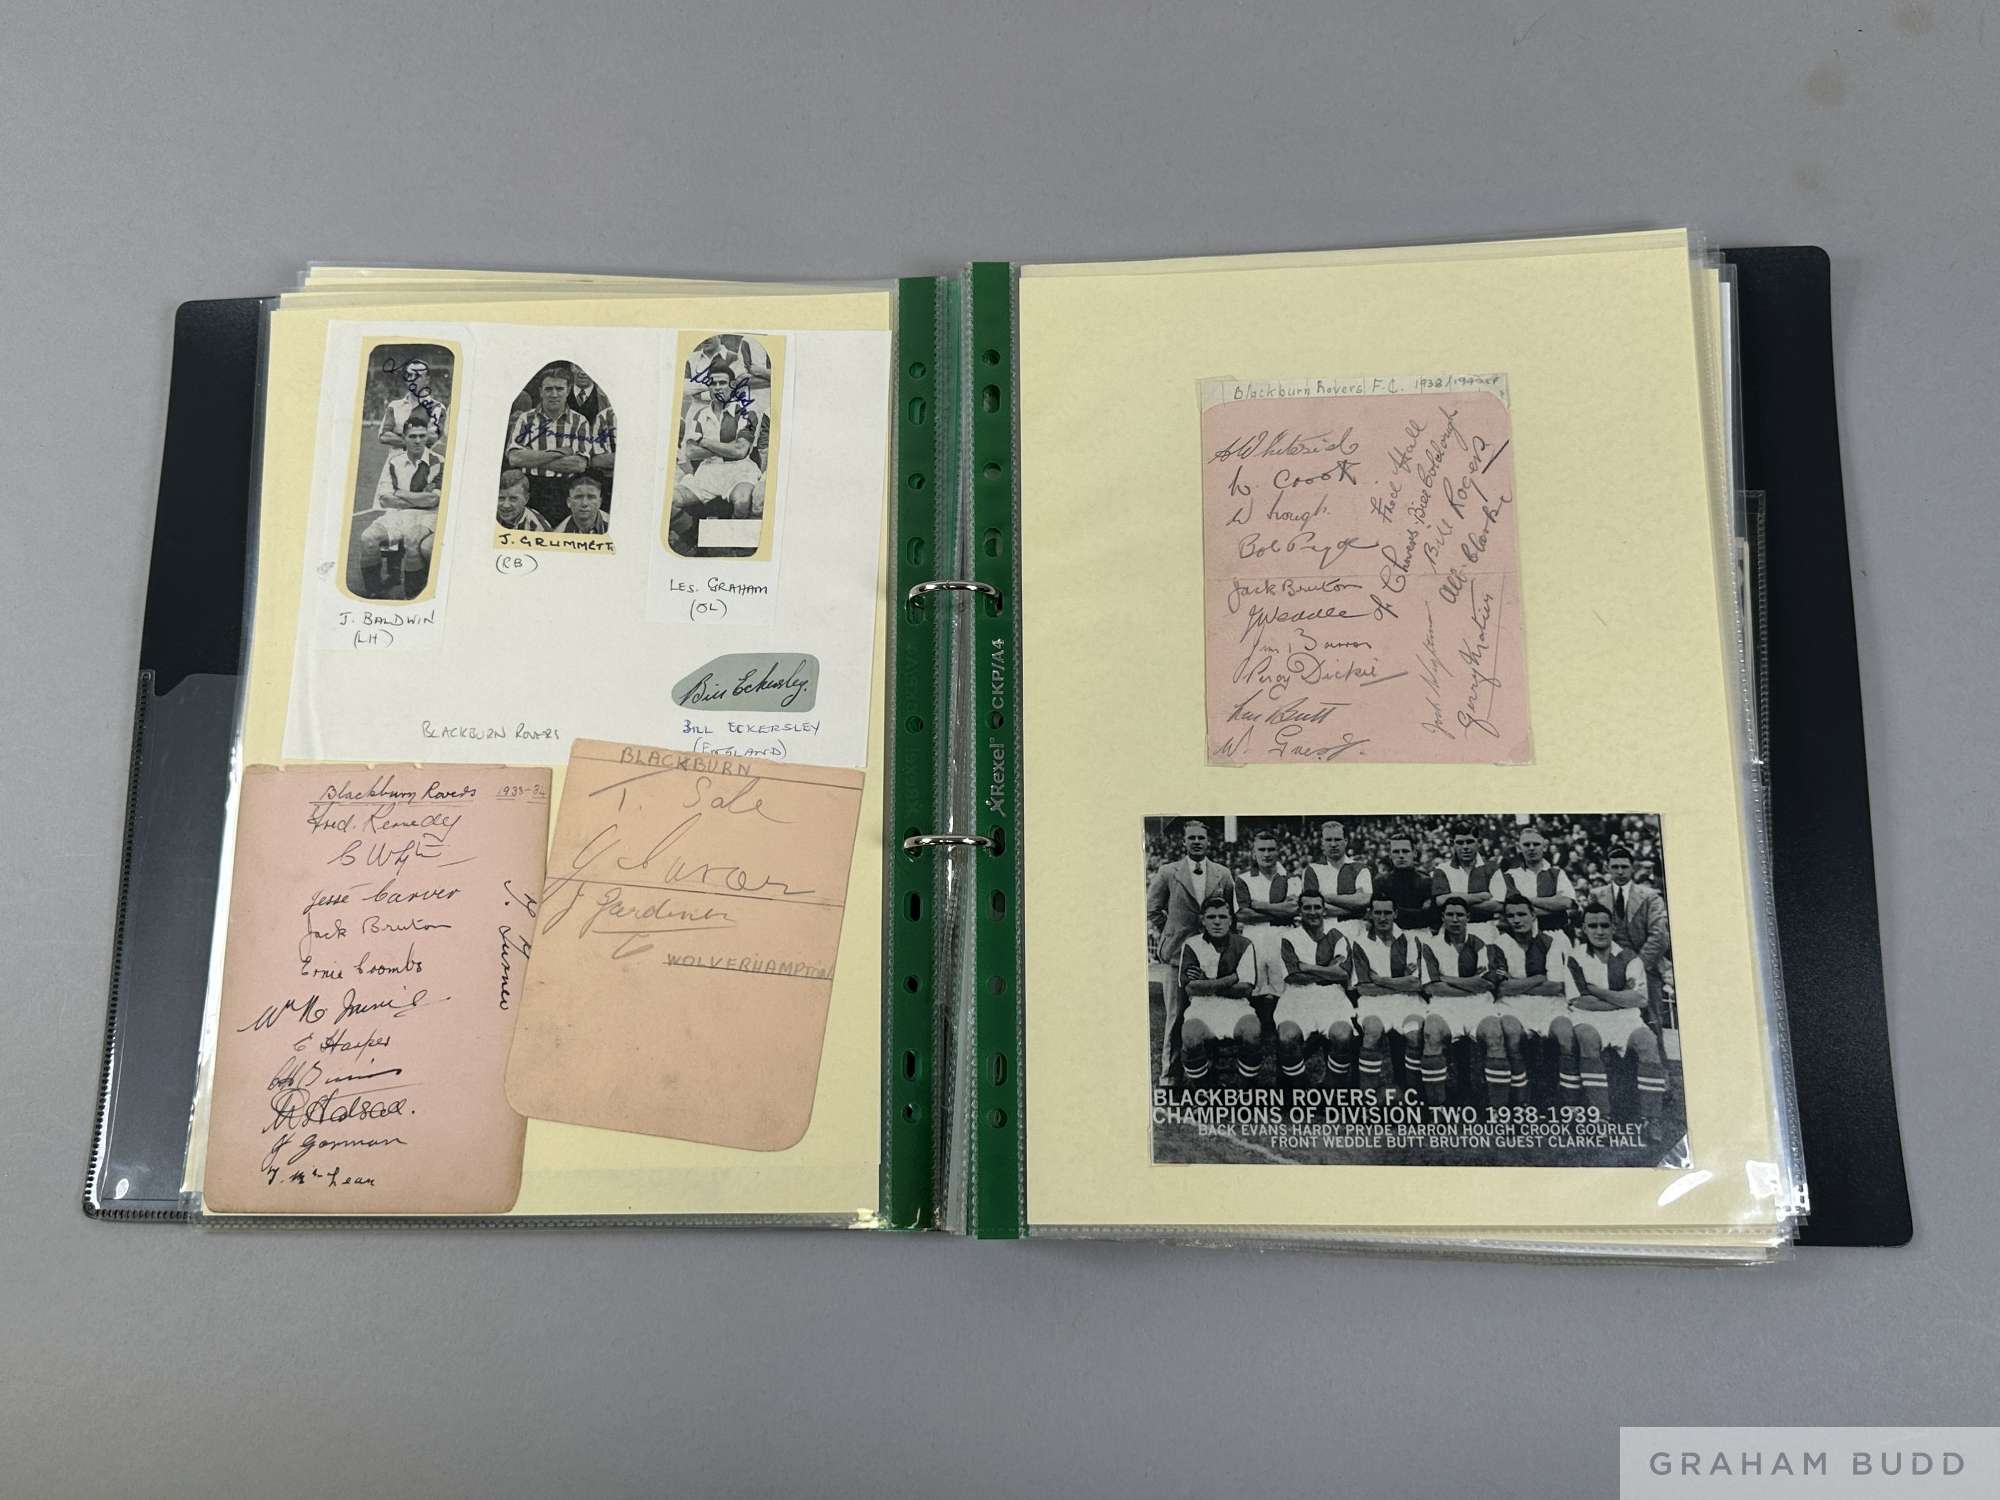 J. Baldwin
J. Grummett
J. GRUMMETT
(RB)
LES. GRAHAM
(OL)
J. BALDWIN
(LH)
Bill Eckersley.
BILL ECKERSLEY
(ENGLAND)
BLACKBURN ROVERS
Blackburn Rovers 1933-34
Fred. Kennedy
Jesse Carver
Jack Bruton
Ernie Coombs
E Harper
J Gorman
J. Mc Lean
Turner
BLACKBURN
T. Sale
J Gardiner
WOLVERHAMPTON
Rexel® CKP/A4
Blackburn Rovers F.C. 1938/
A Whiteside
W. Crook
W hough
Bob Pryde
Jack Bruton
J Weddle
Jim Barron
Percy Dickie
Len Butt
W. Guest.
Fred Hall
Bill Rogers
Alb. Clarke
BLACKBURN ROVERS F.C.
CHAMPIONS OF DIVISION TWO 1938-1939
BACK EVANS HARDY PRYDE BARRON HOUGH CROOK GOURLEY
FRONT WEDDLE BUTT BRUTON GUEST CLARKE HALL
GRAHAM BUDD